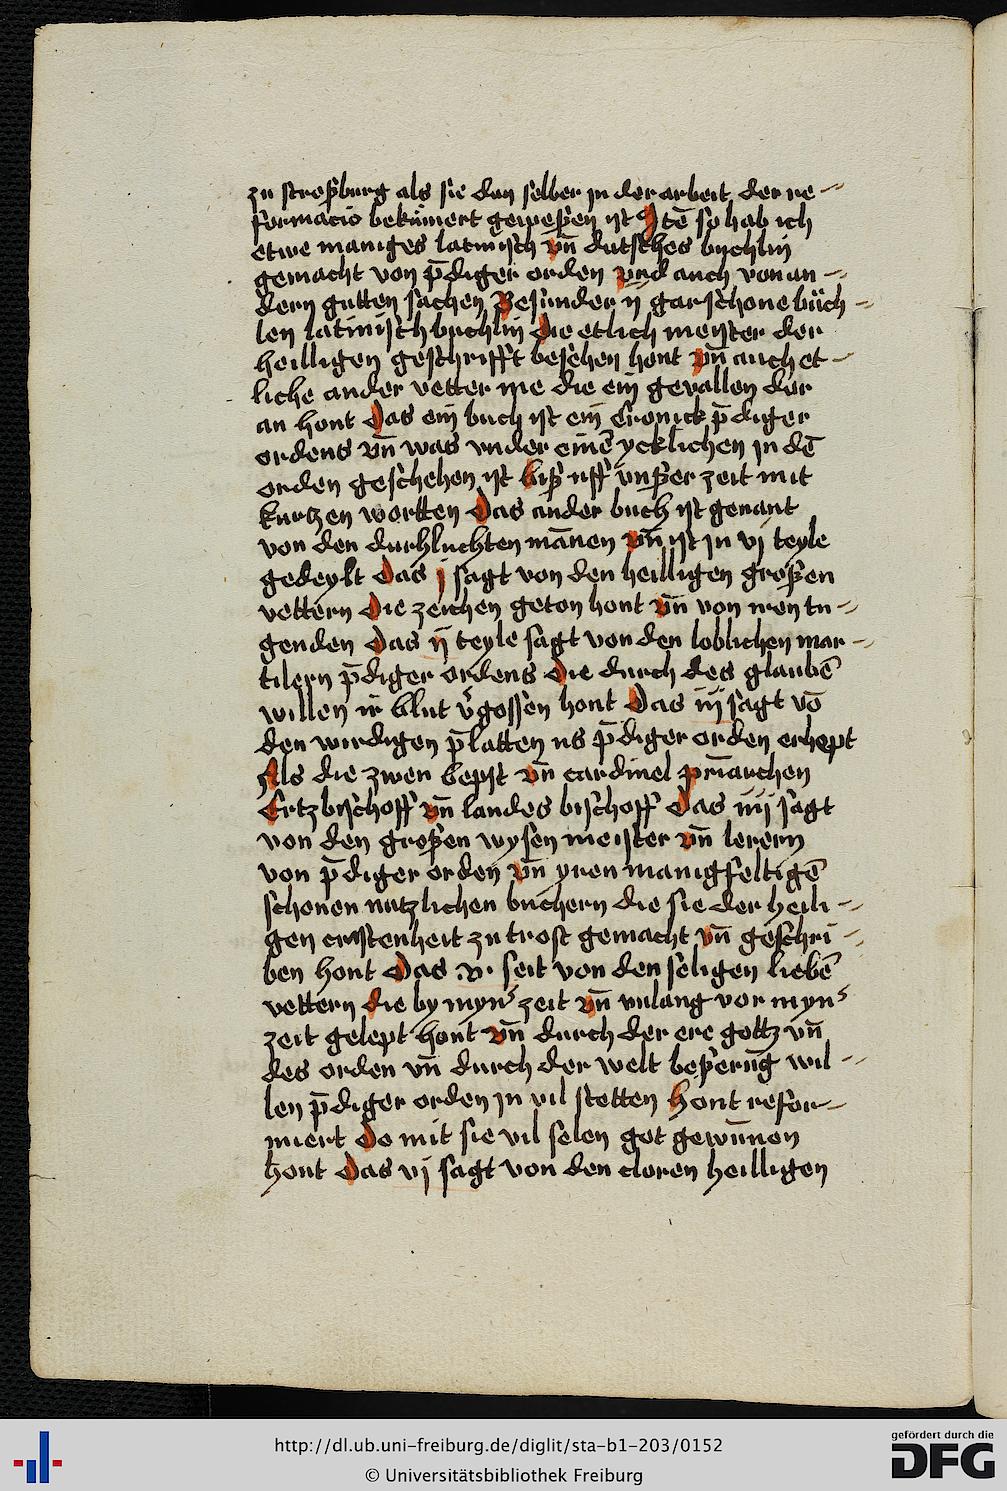 zu stroßburg als sie dan selber jn der arbeit der re-
formacio bekūmert geweßen ist Jtē so hab ich
etwe maniges latinisch vn̄ dutsches buchlin
gemacht von p̄diger orden vnd auch von an-
dern gutten sachen Besunder ij gar schone büch-
len latinisch buchlin Die etlich meister der
heilligen geschrifft besehen hont vn̄ auch et-
liche ander vetter me die ein gevallen dar
an hont Das ein buch ist ein Cronick p̄diger
ordens vn̄ was vnder einē ycklichen jn dē
orden geschehen ist biß uff vnßer zeit mit
kurtzen wortten Das ander buch ist genant
von den durhluchten mānen vn̄ ist jn vj teyle
gedeylt Das j sagt von den heilligen großen
vettern Die zeichen geton hont vn̄ von iren tu-
genden Das ij teyle sagt von den loblichen mar-
tilern p̄diger ordens Die durch des glaubē
willen ir blut v̾gossen hont Das iij sagt vō
den wirdigen p̄latten us p̄diger orden erhept
Als die zwen bepst vn̄ cardinel pr̄iarchen
Ertzbischoff vn̄ landes bischoff Das iiij sagt
von den großen wysen meister vn̄ lerern
von p̄diger orden vn̄ yren manigfeltigē
schonen nutzlichen buchern die sie der heili-
gen cristenheit zu trost gemacht vn̄ geschri-
ben hont Das .v. seit von den seligen liebē
vettern die by myn̾ zeit vn̄ vnlang vor myn̾
zeit gelept hont vn̄ durch der ere gottz vn̄
des orden vn̄ durch der welt beßerūg wil-
len p̄diger orden jn vil stetten hont refor-
miert Do mit sie vil selen got gewūnen
hont Das vj sagt von den cloren heilligen
http://dl.ub.uni-freiburg.de/diglit/sta-b1-203/0152
© Universitätsbibliothek Freiburg
gefördert durch die
DFG